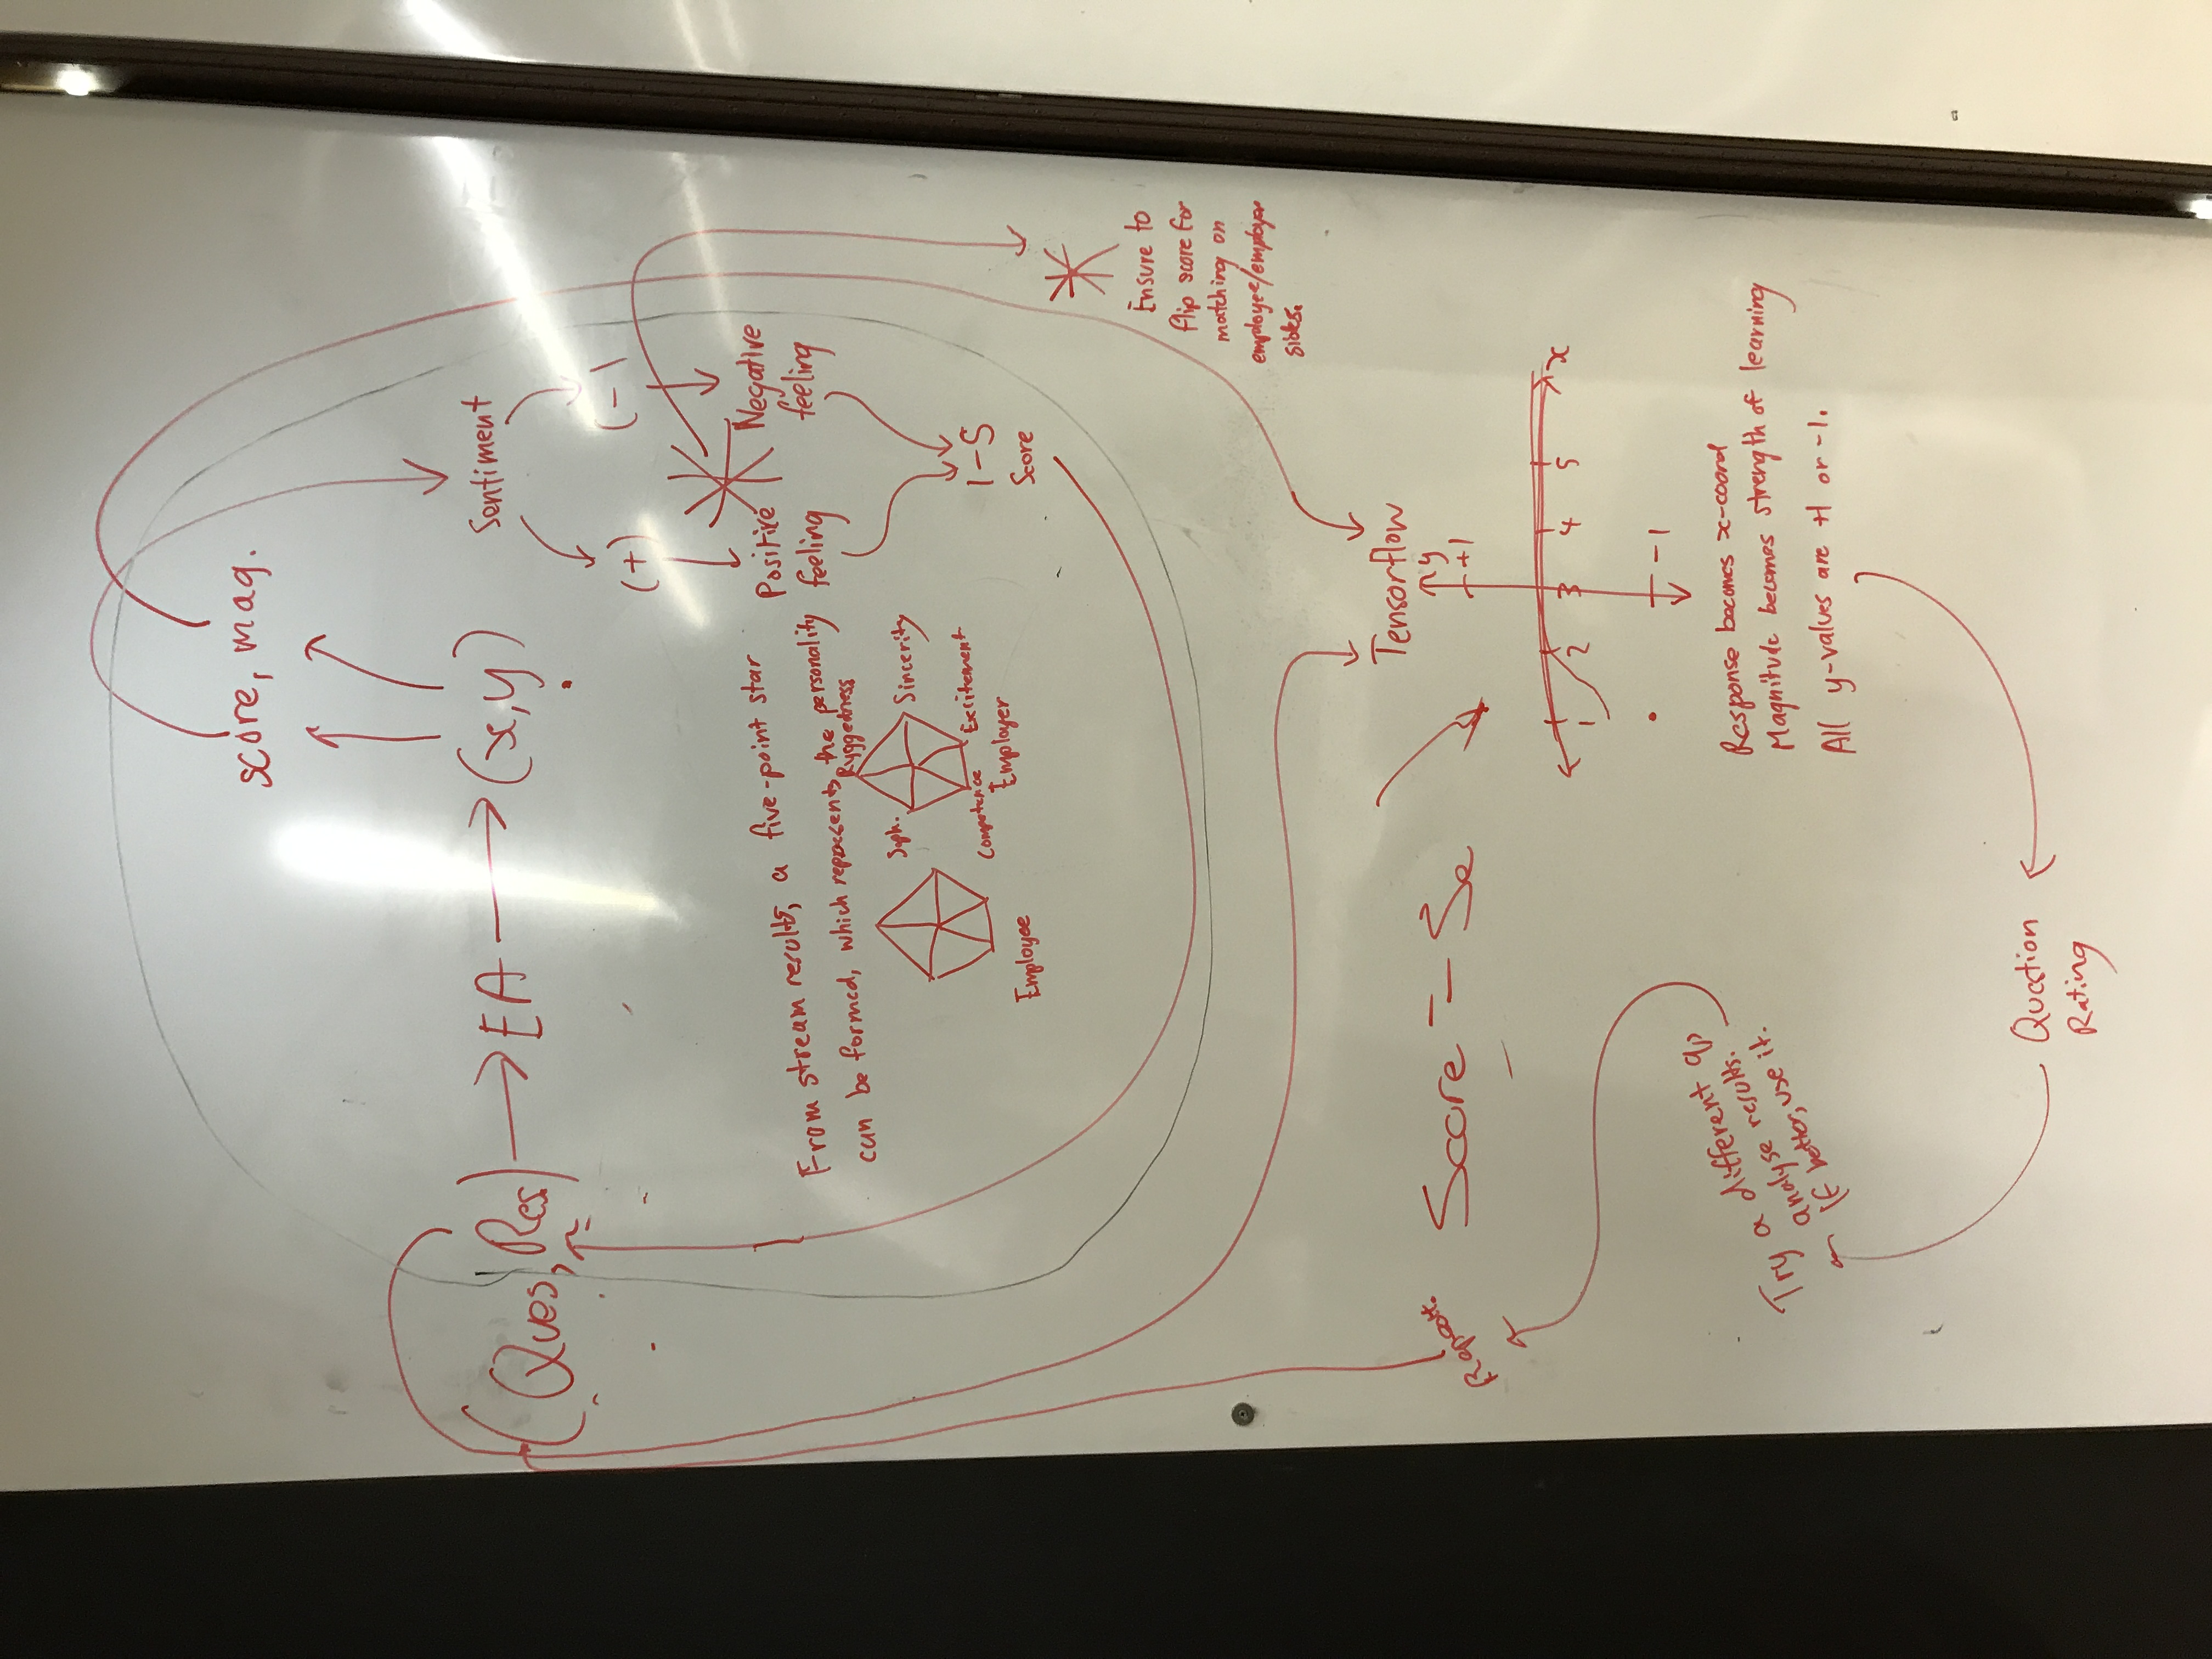 score, mag.
(Ques, Res) → EA → (x,y)
Sentiment
(+)
(-)
Positive
feeling
Negative
feeling
1-5
Score
From stream results, a five-point star
can be formed, which represents the personality
Ruggedness
Soph.
Sincerity
Competence
Excitement
Employee
Employer
Ensure to
flip score for
matching on
employee/employer
sides.
Tensorflow
y
+1
1
2
3
4
5
x
-1
Score
Repeat.
Response becomes x-coord
Magnitude becomes strength of learning
All y-values are +1 or -1.
Try a different q,
analyse results.
If better, use it.
Question
Rating